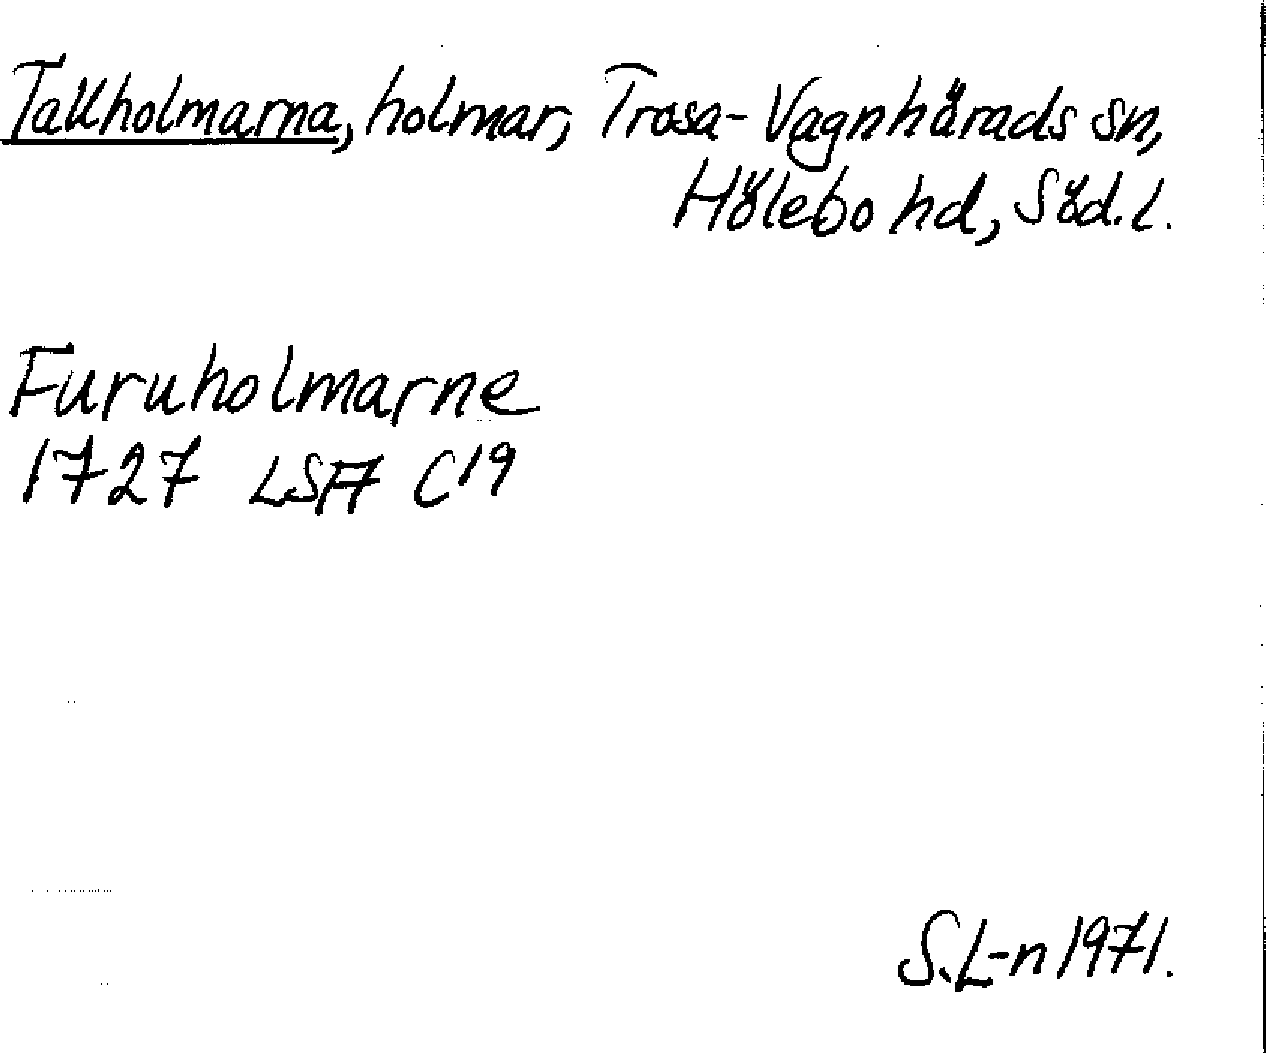 Tallholmarna, holmar, Trosa-Vagnhärads sn,
Hölebo hd, Söd. l.
Furuholmarne
1727 LSA C19
S.L-n 1971.